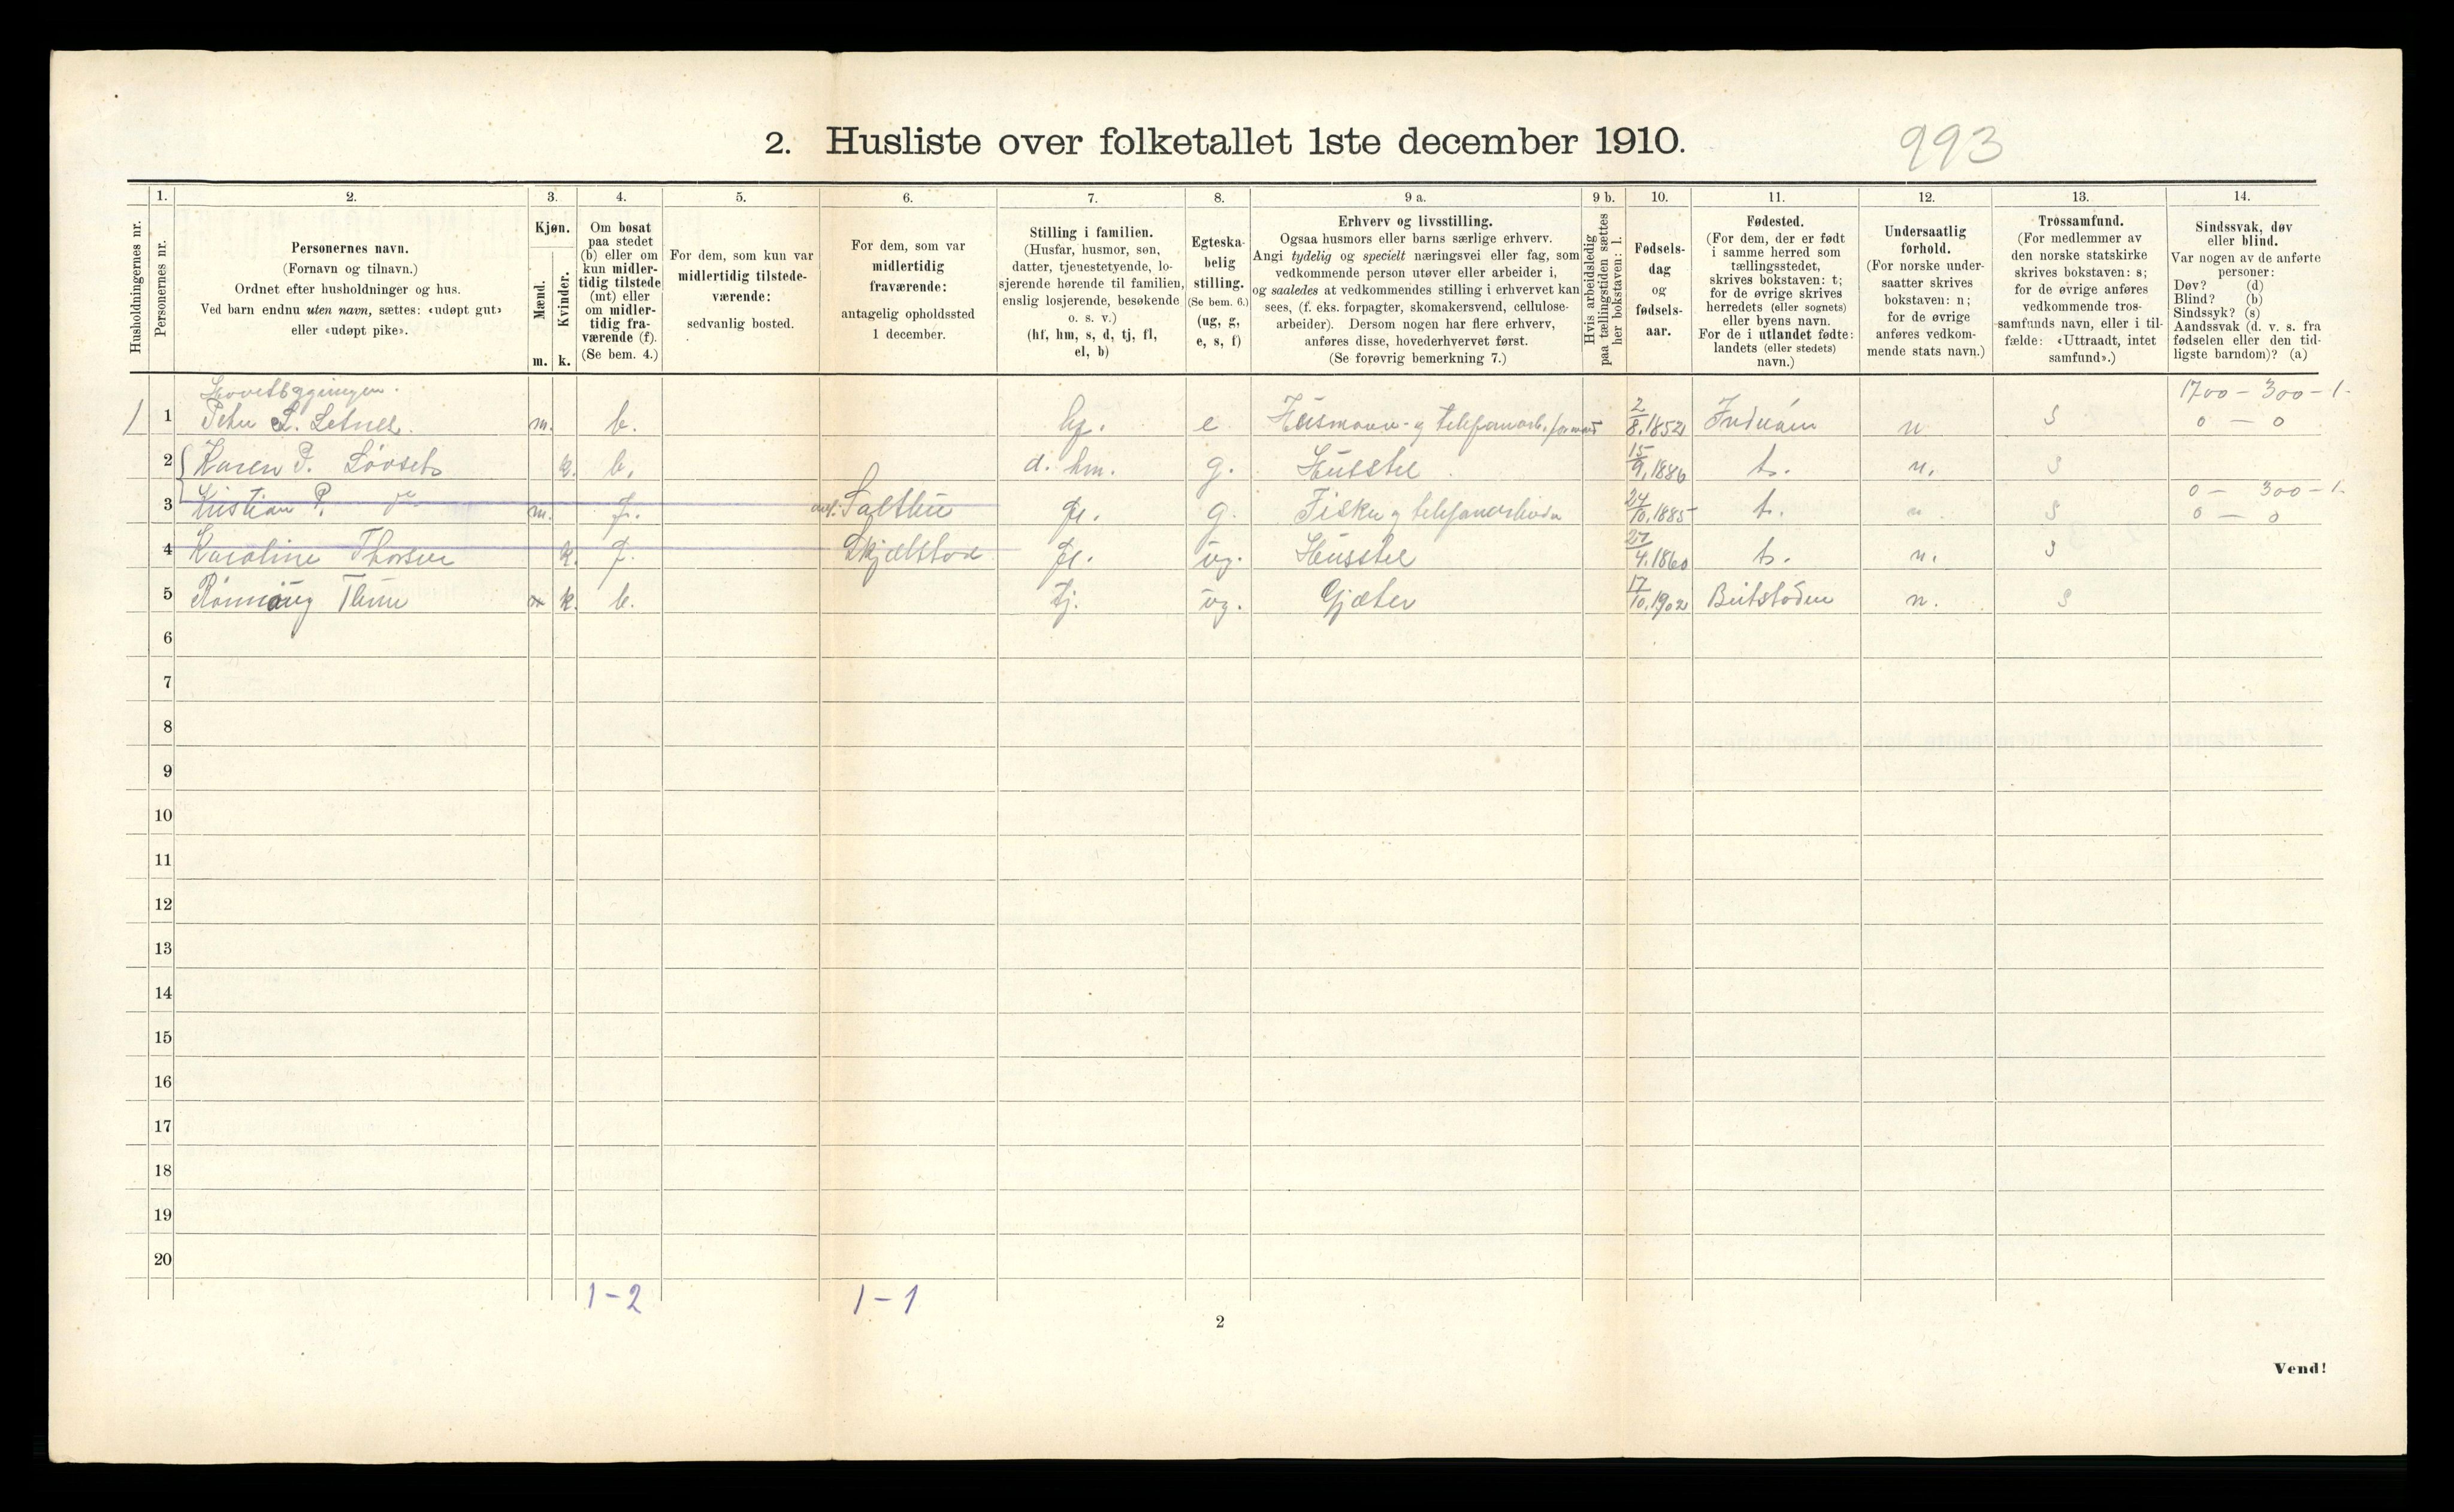 2. Husliste over folketallet 1ste december 1910.
993
Husholdningernes nr.
1.
Personernes nr.
2.
Personernes navn.
(Fornavn og tilnavn.)
Ordnet efter husholdninger og hus.
Ved barn endnu uten navn, sættes: «udøpt gut»
eller «udøpt pike».
3.
Kjøn.
Mænd.
m.
Kvinder.
k.
4.
Om bosat
paa stedet
(b) eller om
kun midler-
tidig tilstede
(mt) eller
om midler-
tidig fra-
værende (f).
(Se bem. 4.)
5.
For dem, som kun var
midlertidig tilstede-
værende:
sedvanlig bosted.
6.
For dem, som var
midlertidig
fraværende:
antagelig opholdssted
1 december.
7.
Stilling i familien.
(Husfar, husmor, søn,
datter, tjenestetyende, lo-
sjerende hørende til familien,
enslig losjerende, besøkende
o. s. v.)
(hf, hm, s, d, tj, fl,
el, b)
8.
Egteska-
belig
stilling.
(Se bem. 6.)
(ug, g,
e, s, f)
9 a.
Erhverv og livsstilling.
Ogsaa husmors eller barns særlige erhverv.
Angi tydelig og specielt næringsvei eller fag, som
vedkommende person utøver eller arbeider i,
og saaledes at vedkommendes stilling i erhvervet kan
sees, (f. eks. forpagter, skomakersvend, cellulose-
arbeider). Dersom nogen har flere erhverv,
anføres disse, hovederhvervet først.
(Se forøvrig bemerkning 7.)
9 b.
Hvis arbeidsledig
paa tællingstiden sættes
her bokstaven: l.
10.
Fødsels-
dag
og
fødsels-
aar.
11.
Fødested.
(For dem, der er født
i samme herred som
tællingsstedet,
skrives bokstaven: t;
for de øvrige skrives
herredets (eller sognets)
eller byens navn.
For de i utlandet fødte:
landets (eller stedets)
navn.)
12.
Undersaatlig
forhold.
(For norske under-
saatter skrives
bokstaven: n;
for de øvrige
anføres vedkom-
mende stats navn.)
13.
Trossamfund.
(For medlemmer av
den norske statskirke
skrives bokstaven: s;
for de øvrige anføres
vedkommende tros-
samfunds navn, eller i til-
fælde: «Uttraadt, intet
samfund».)
14.
Sindssvak, døv
eller blind.
Var nogen av de anførte
personer:
Døv? (d)
Blind? (b)
Sindssyk? (s)
Aandssvak (d. v. s. fra
fødselen eller den tid-
ligste barndom)? (a)
Hovedbygningen. 1700 - 300 - 1.
1 1 Peter L. Letnes. m. b. hf. e Husmann- g telefonarb. formand 2/8.1852 Inderøen n s 0 - 0
2 Karen P. Løvseth k. b. d. hm. g. Husstel 15/9.1886 t. n. s
0 - 300 - 1.
3 Kristian P. m. f. Salthu fl. g. Fisker g telefonarbeider 24/10.1885 t. n s 0 - 0
4 Karoline Thorsen k. f. Skjelstad fl. ug. Husstel 27/4.1860 t. n. s
5 Rønnaug Thun k. b. tj. ug. Gjæter 17/10.1902 Beitstaden n. s
6
7
8
9
10
11
12
13
14
15
16
17
18
19
20
1-2 1-1
2
Vend!